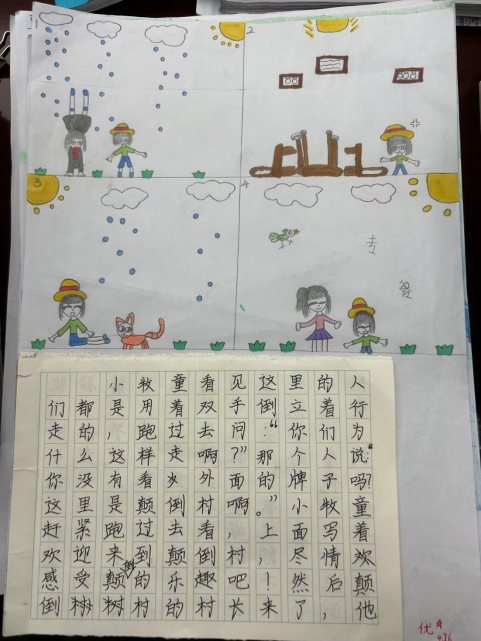 1
2
3
4
小牧童看见这里的人
们都是用着双手倒立着行
走的,跑过去问:“你们为
什么这样走啊?”那个人说:“
你没有看外面的牌子吗?
这里是颠倒村啊。”小牧童
赶紧跑过去看,上面写着
欢迎来到颠倒村,尽情欢
感受颠倒的乐趣吧!然后颠
倒村的村长来了,他
优